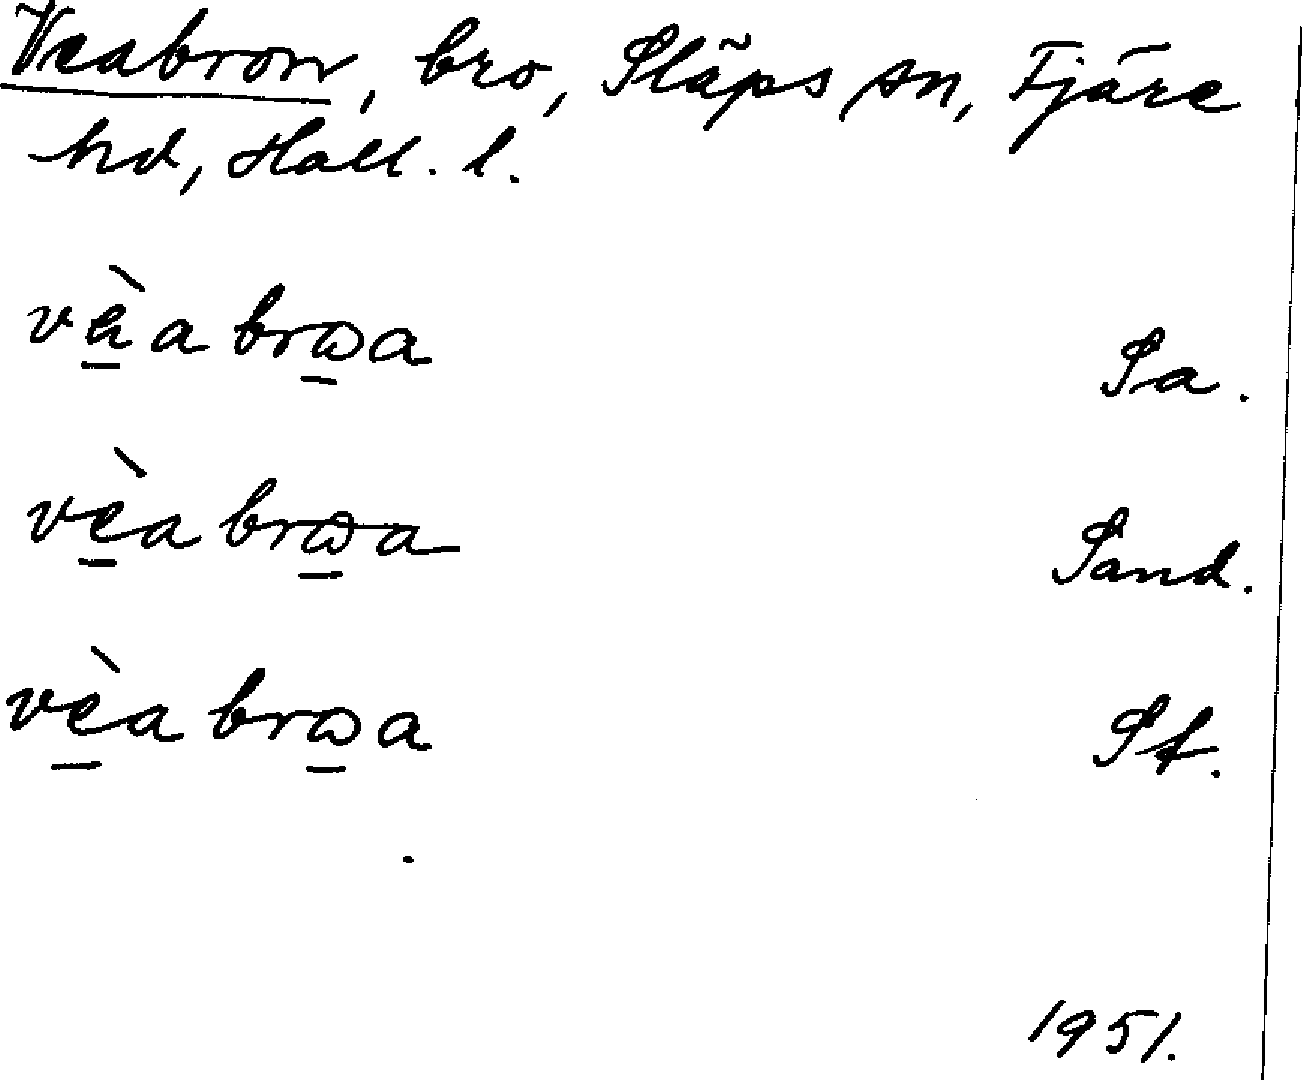 Veabron, bro, Släps sn, Fjäre
hd, Hall. l.
vè̠a brω̠a Sa.
vè̠a brω̠a Sand.
vè̠a brω̠a St.
1951.